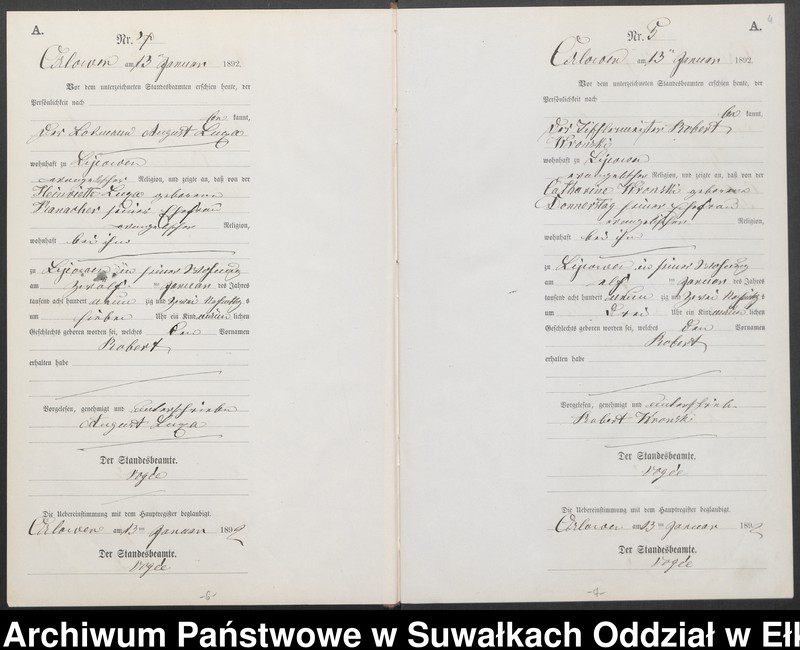 A.
Nr. 4
Czarowen am 13 ten Januar 1892.
Vor dem unterzeichneten Standesbeamten erschien heute, der
Persönlichkeit nach
be kannt,
der Losmann August Luga
wohnhaft zu Lipowen
evangelischer Religion, und zeigte an, daß von der
Heinriette Luga geborene
seiner Ehefrau
evangelischer Religion,
wohnhaft bei ihm
zu Lipowen in seiner Wohnung
am zwölf ten Januar des Jahres
tausend acht hundert neun zig und zwei Nachmittags
um sieben Uhr ein Kind männ lichen
Geschlechts geboren worden sei, welches den Vornamen
Robert
erhalten habe
Vorgelesen, genehmigt und unterschrieben
August Luga
Der Standesbeamte.
Vogée
Die Uebereinstimmung mit dem Hauptregister beglaubigt.
am 13 ten Januar 1892
Der Standesbeamte.
Vogée
-6-
A.
Nr. 5
am 13 ten Januar 1892.
Vor dem unterzeichneten Standesbeamten erschien heute, der
Persönlichkeit nach
be kannt,
der Robert
Kronski
wohnhaft zu Lipowen
evangelischer Religion, und zeigte an, daß von der
Catharine Kronski geborene
Donnerstag seiner Ehefrau
evangelischer Religion,
wohnhaft bei ihm
zu Lipowen in seiner Wohnung
am elf ten Januar des Jahres
tausend acht hundert neun zig und zwei Nachmittags
um drei Uhr ein Kind männ lichen
Geschlechts geboren worden sei, welches den Vornamen
Robert
erhalten habe
Vorgelesen, genehmigt und unterschrieben
Robert Kronski
Der Standesbeamte.
Vogée
Die Uebereinstimmung mit dem Hauptregister beglaubigt.
am 13 ten Januar 1892
Der Standesbeamte.
Vogée
-7-
Archiwum Państwowe w Suwałkach Oddział w Ełk